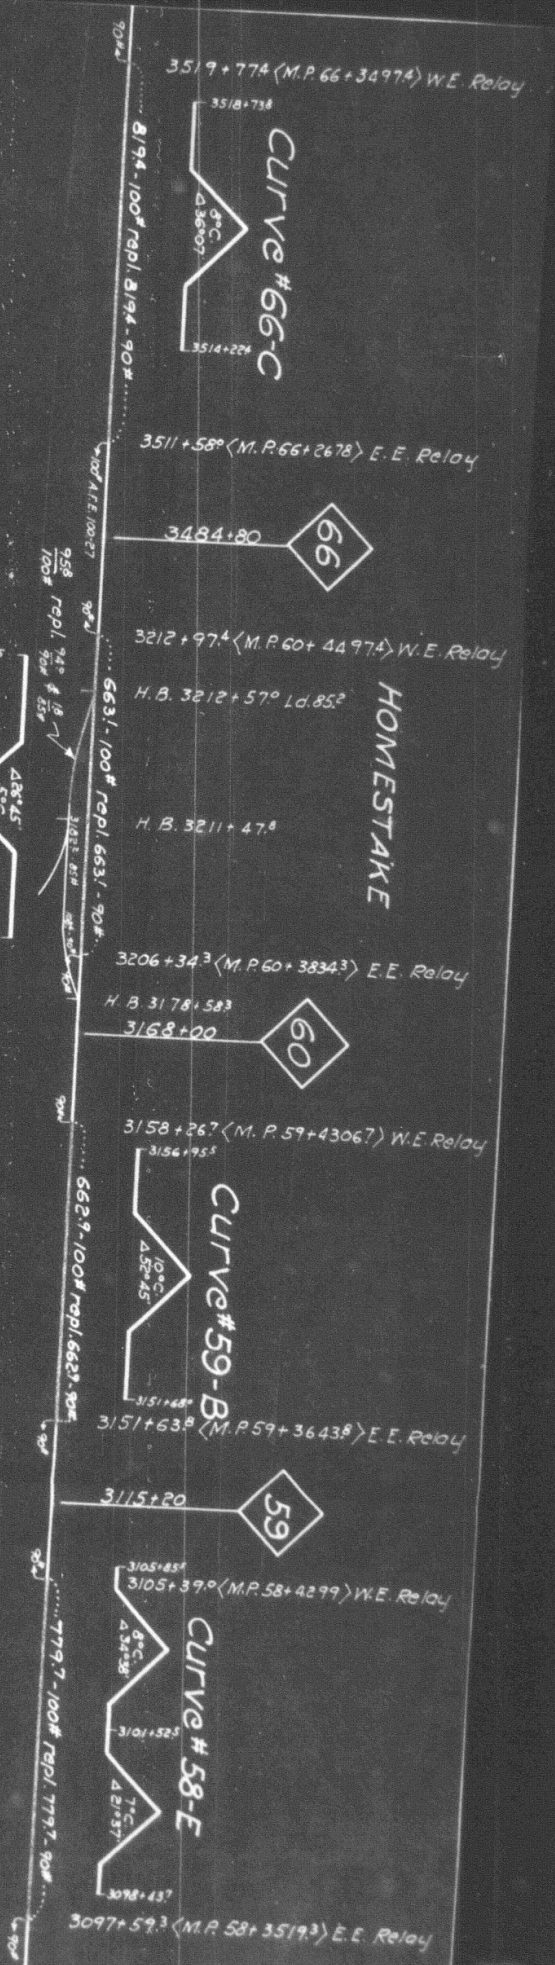 90#
3519+77.4 <M.P. 66+3497.4> W.E. Relay
3518+73.8
Curve #66-C
8°C.
Δ36°07'
819.4-100# repl. 819.4-90#
3514+22.4
3511+58.0 <M.P. 66+2678> E.E. Relay
100# A.F.E. 100-27
3484+80
66
90#
3212+97.4 <M.P. 60+4497.4> W.E. Relay
H.B. 3212+57.0 Ld. 85.2
HOMESTAKE
95.8
100# repl. 94.0
90# & 1.8
85#
663.1-100# repl. 663.1-90#
H.B. 3211+47.8
Δ26°45'
5°C.
3206+34.3 <M.P. 60+3834.3> E.E. Relay
H.B. 3178+58.3
3168+00
60
90#
3158+26.7 <M.P. 59+4306.7> W.E. Relay
3156+95.5
Curve #59-B
10°C.
Δ52°45'
662.9-100# repl. 662.9-90#
3151+68.0
3151+63.8 <M.P. 59+3643.8> E.E. Relay
90#
3115+20
59
90#
3105+85.5
3105+39.0 <M.P. 58+4299> W.E. Relay
Curve #58-E
8°C.
Δ34°38'
3101+52.5
7°C.
Δ21°37'
779.7-100# repl. 779.7-90#
3098+43.7
3097+59.3 <M.P. 58+3519.3> E.E. Relay
90#